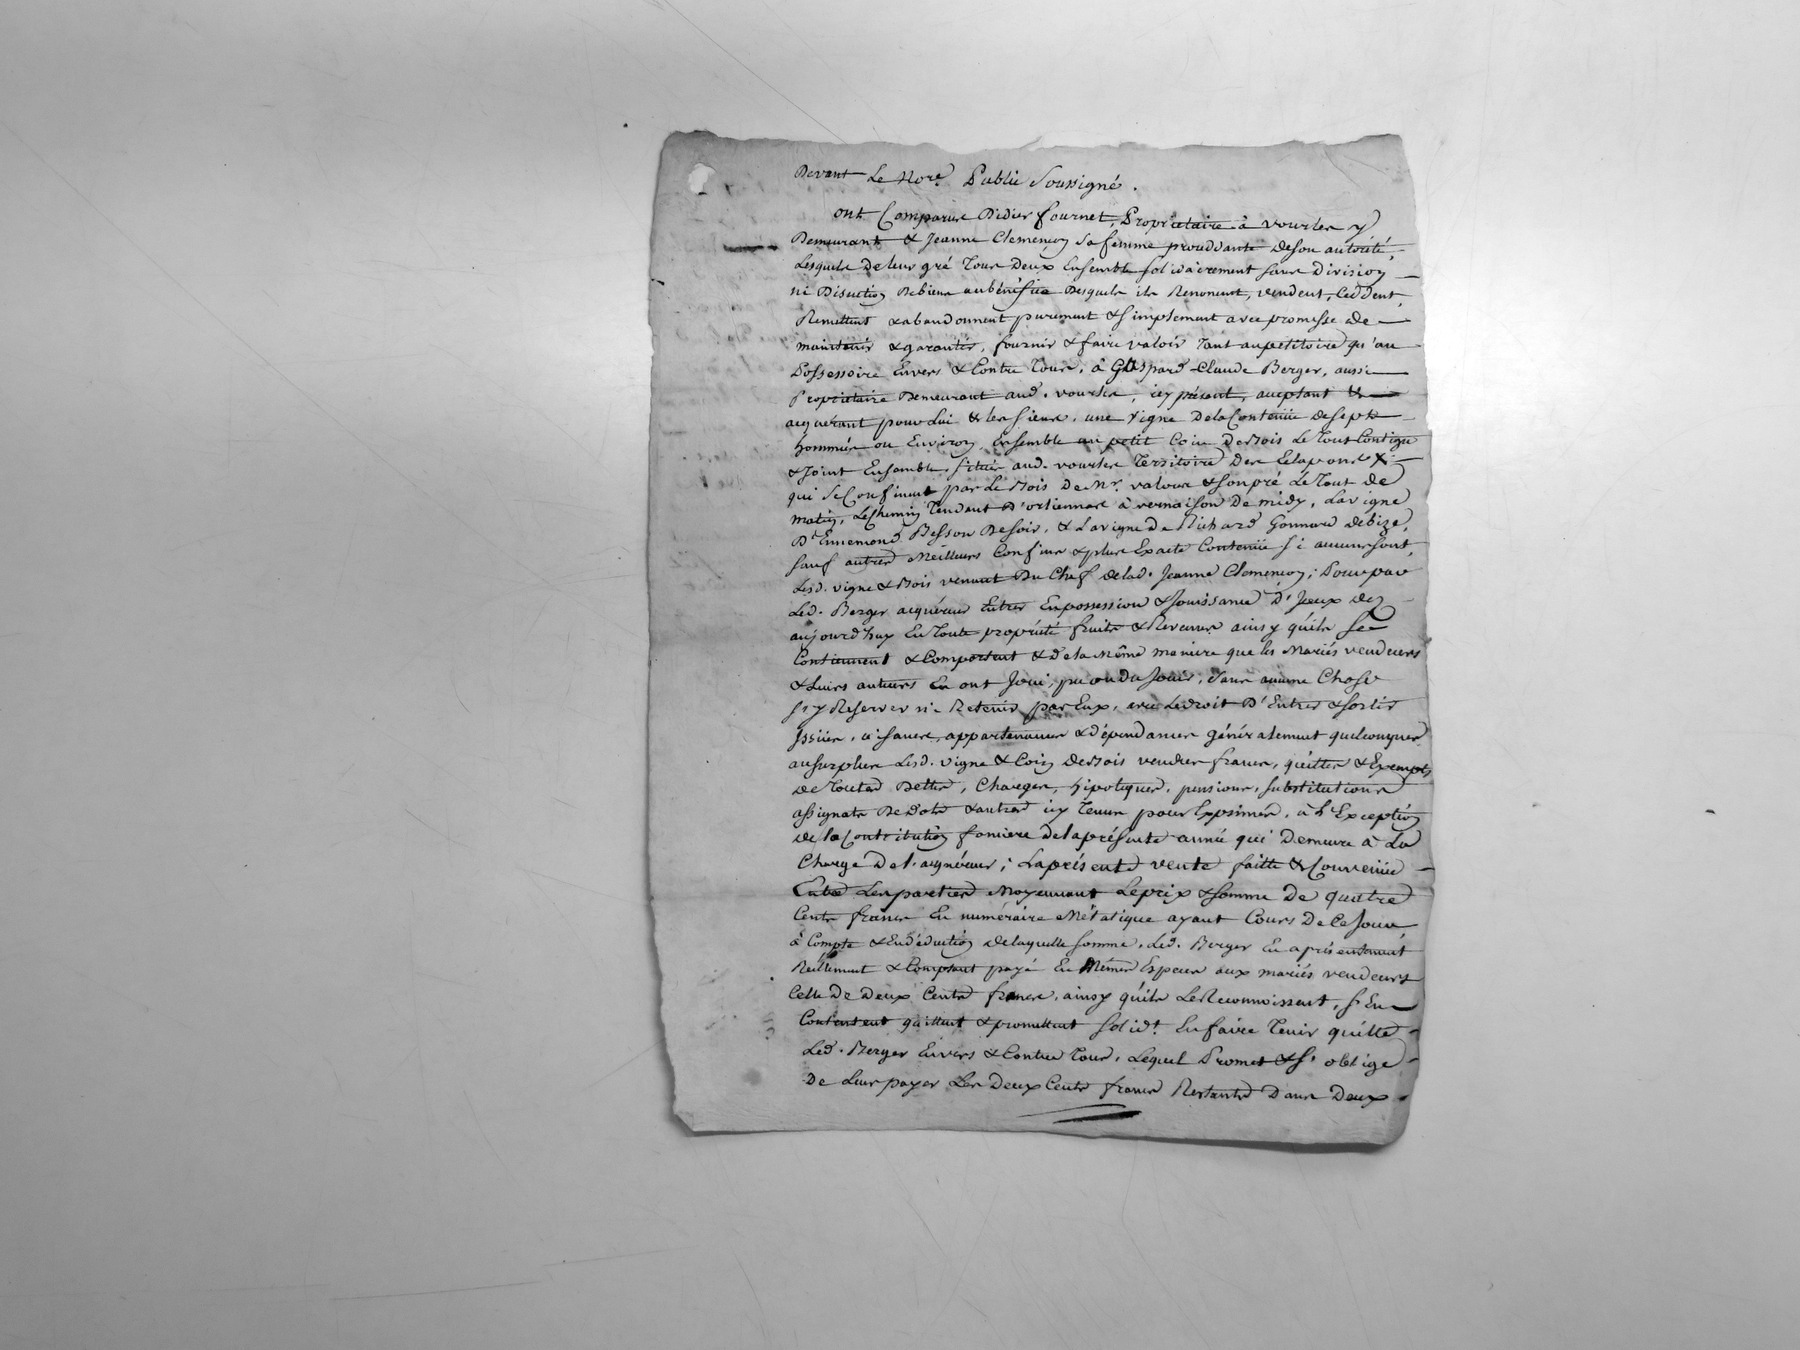 Devant Le Nore. Public Soussigné.
ont Comparus Didier fournet, Propriétaire à vourles y
Demeurant & Jeanne Clemencon Sa femme procédante de son autorité,
Lesquels de leur gré Tous Deux Ensemble solidairement sans Division
ni Discution de biens au bénéfice Desquels ils Renoncent, vendent, Cèddent,
Remettent & abandonnent purement & simplement avec promesse de
maintenir & garantir, fournir & faire valoir Tant au petitoire qu'au
Possessoire Envers & Contre Tous, à Gaspard Claude Berger, aussi
Propriétaire Demeurant aud. vourles, icy présent, acceptant &
acquérant pour Lui & les siens, une vigne De la Contenüe de sept
hommées ou Environ, Ensemble un petit Coin De Bois Le Tout Contigu
& Joint Ensemble, situés aud. vourles Territoire Des
qui se Confinent par Le Bois De Mr. valous & son pré Le Tout de
matin, Le Chemin Tendant D'orliennas à vernaison De midy, La vigne
D'Ennemond Besson De soir, & La vigne De Richard Gonnard de bize,
sauf autres Meilleurs Confins & plus Exacte Contenüe si aucuns sont,
Lesd. vigne & Bois venant Du Chef de lad. Jeanne Clemencon; Pour par
Led. Berger acquéreur Entrer En possession & Jouissance D'Iceux dez
aujourd'huy En Toute propriété fruits & Revenus ainsy qu'ils se
Contiennent & Comportent & de la Même maniere que les Mariés vendeurs
& Leurs auteurs En ont Joui, pu ou du Jouir, sans aucune Chose
s'y Réserver ni Retenir par Eux, avec Le droit D'Entrer & sortir
Issües, aisances, appartenances & dépendances généralement quelconques
au surplus Lesd. vigne & Coin de Bois vendus francs, quittes & Exempts
de Toutes Dettes, Charges, hipoteques, pensions, substitutions
assignats De Dots & autres icy Tenus pour Exprimés, à l'Exception
de la Contribution fonciere de la présente année qui Demeure à La
Charge De l'acquéreur; La présente vente faitte & Convenüe
Entre Les parties Moyennant Le prix & somme De quatre
Cents francs En numéraire Métalique ayant Cours De Ce Jour
à Compte & En déduction de laquelle somme, Led. Berger En a présentement
Réellement & Comptant payé En Mêmes Especes aux mariés vendeurs
Celle De Deux Cents francs, ainsy qu'ils Le Reconnoissent, s'En
Contentent quittent & promettent solidt. En faire Tenir quitte
Led. Berger Envers & Contre Tous, Lequel Promet & s'oblige
De Leur payer Les Deux Cents francs Restants Dans Deux